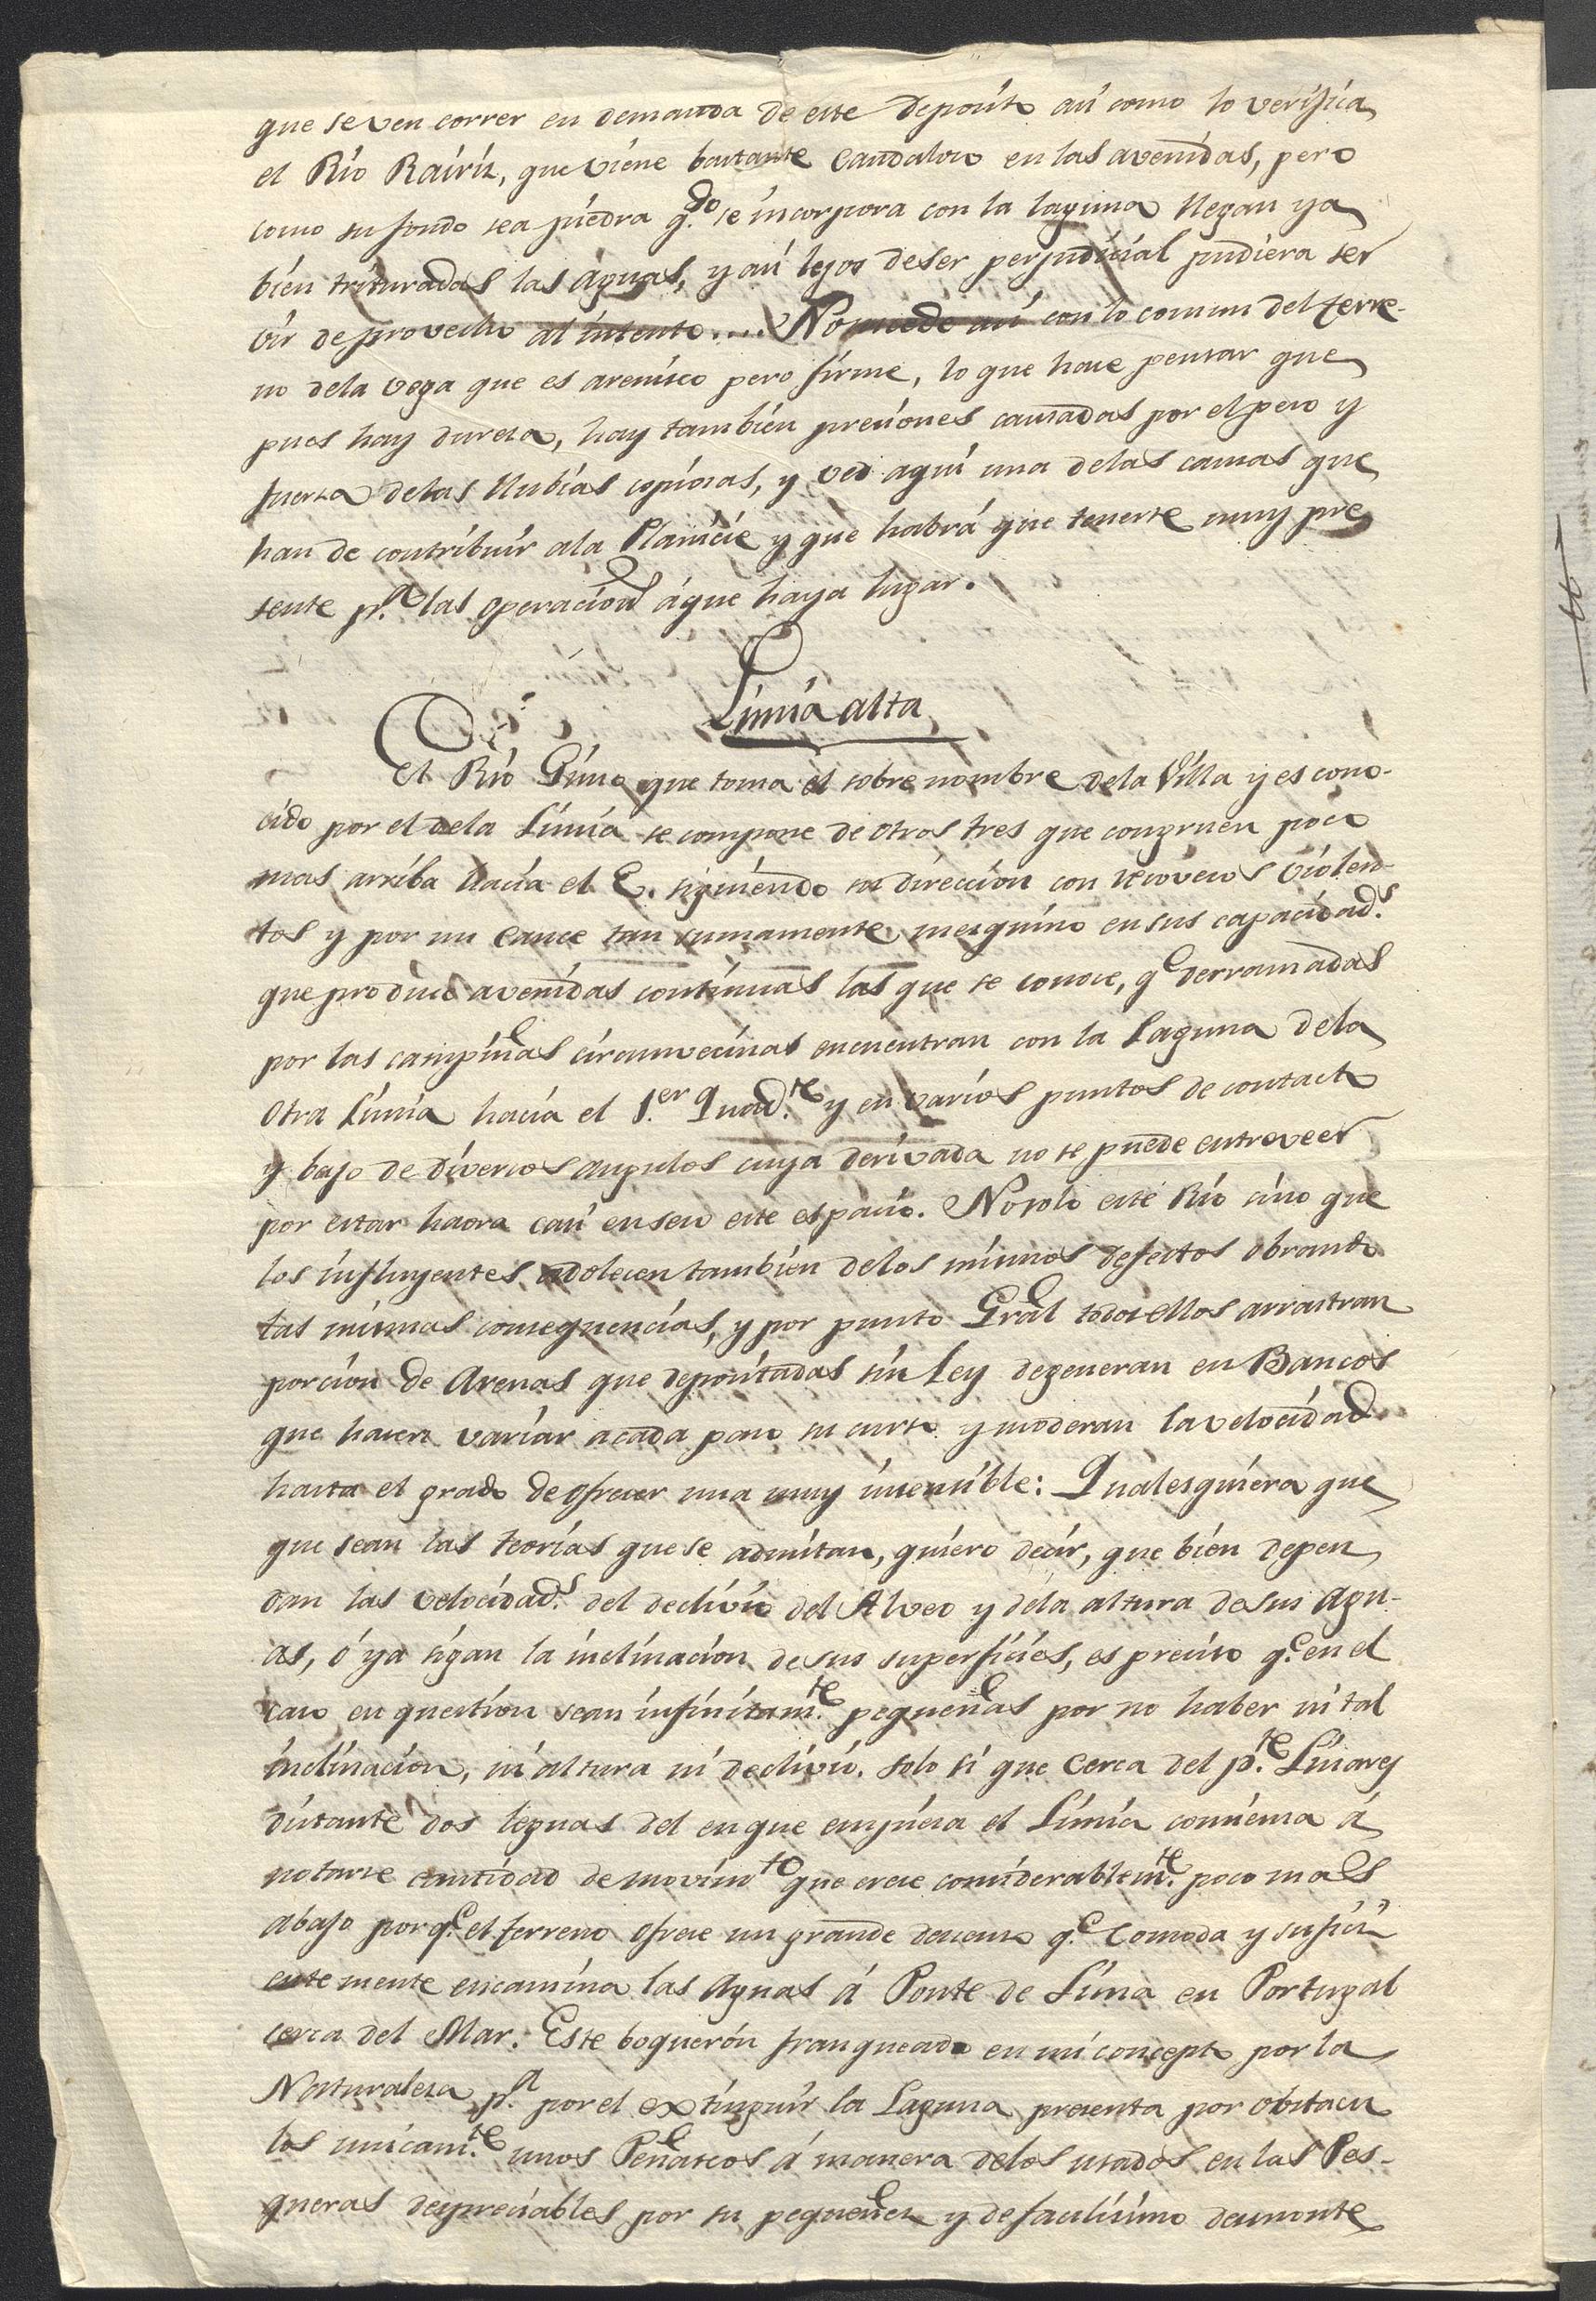 que se ven correr en demanda de este deposito asi como lo verifica
el Rio Rairiz, que viene bastante caudaloso en las avenidas, pero
como su fondo sea piedra q.do se incorpora con la laguna llegan ya
bien trituradas las aguas, y asi lejos de ser perjudicial pudiera ser
vir de provecho al intento.... No sucede asi con lo comun del terre-
no de la vega que es arenisco pero firme, lo que hace pensar que
pues hay dureza, hay tambien presiones causadas por el peso y
fuerza de las lluvias copiosas, y ved aqui una de las causas que
han de contribuir a la Planicie y que habrá que tenerse muy pre
sente p.a las operacion.s á que haya lugar.
Limia alta
El Rio Gimo que toma el sobre nombre de la Villa y es cono-
cido por el de la Limia se compone de otros tres que congruen poco
mas arriba hacia el E. siguiendo su direccion con recovecos violen-
tos y por un cauce tan sumamente mezquino en sus capacidad.s
que produce avenidas continuas las que se conoce, q.e derramadas
por las campiñas circunvecinas encuentran con la Laguna de la
otra Limia hacia el 1.er Quad.te y en varios puntos de contacto
y bajo de diversos angulos cuya derivada no se puede entreveer
por estar haora casi en seco este espacio. No solo este Rio sino que
los influyentes adolecen tambien de los mismos defectos obrando
las mismas consequencias, y por punto Gral todos ellos arrastran
porcion de Arenas que depositadas sin Ley degeneran en Bancos
que hacen variar a cada paso su curso y moderan la velocidad
hasta el grado de ofrecer una muy insensible: Qualesquiera que
que sean las teorías que se admitan, quiero decir, que bien depen
dan las velocidad.s del declivio del Alveo y de la altura de sus Agu-
as, ó ya sigan la inclinacion de sus superficies, es preciso q.e en el
caso en question sean infinitam.te pequeñas por no haber ni tal
inclinacion, ni altura ni declivio. solo si que cerca del p.te Liñares
distante dos leguas del en que empieza el Limia comienza á
notarse cantidad de movim.to que crece considerablem.te poco mas
abajo porq.e el terreno ofrece un grande descenso q.e comoda y sufici
entemente encamina las Aguas á Ponte de Lima en Portugal
cerca del Mar. Este boquerón franqueado en mi concepto por la
Naturaleza p.a por el extinguir la Laguna presenta por obstacu
los unicam.te unos Peñascos á manera de los usados en las Pes-
queras despreciables por su pequeñez y de facilisimo desmonte